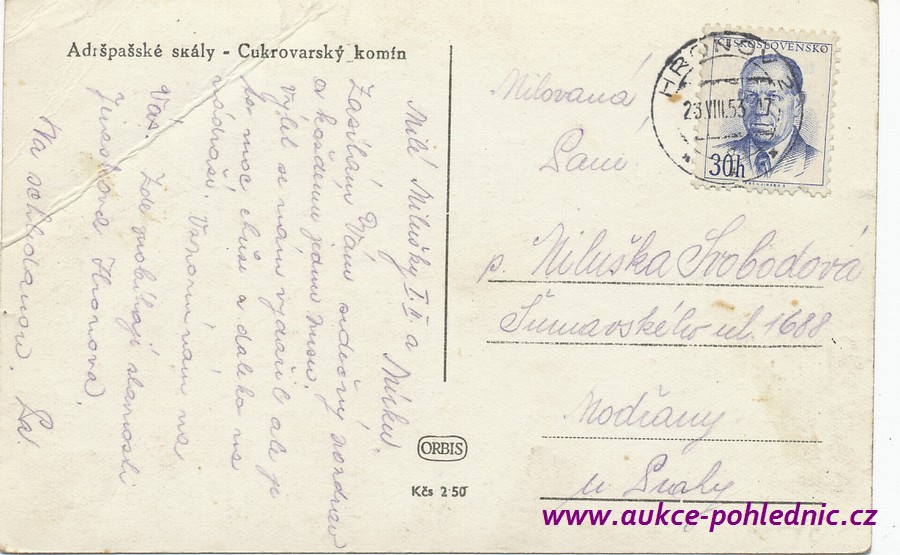 Adršpašské skály - Cukrovarský komín
Milé Milušky I. II. a Mirku
Zasílám Vám srdečný pozdrav
a každému jednu pusu.
Výlet se nám vydařil ale je
to moc chůze a daleko na
nádraží. Vzpomínáme na
Vás. Zde probíhají slavnosti
Jiráskova Hronova.
Na schledanou
ORBIS
Kčs 2·50
ČESKOSLOVENSKO
30h
HRONOV 2
23.VIII.53
Milovaná
Paní
p. Miluška Svobodová
Šumavského ul. 1688
Modřany
u Prahy
www.aukce-pohlednic.cz